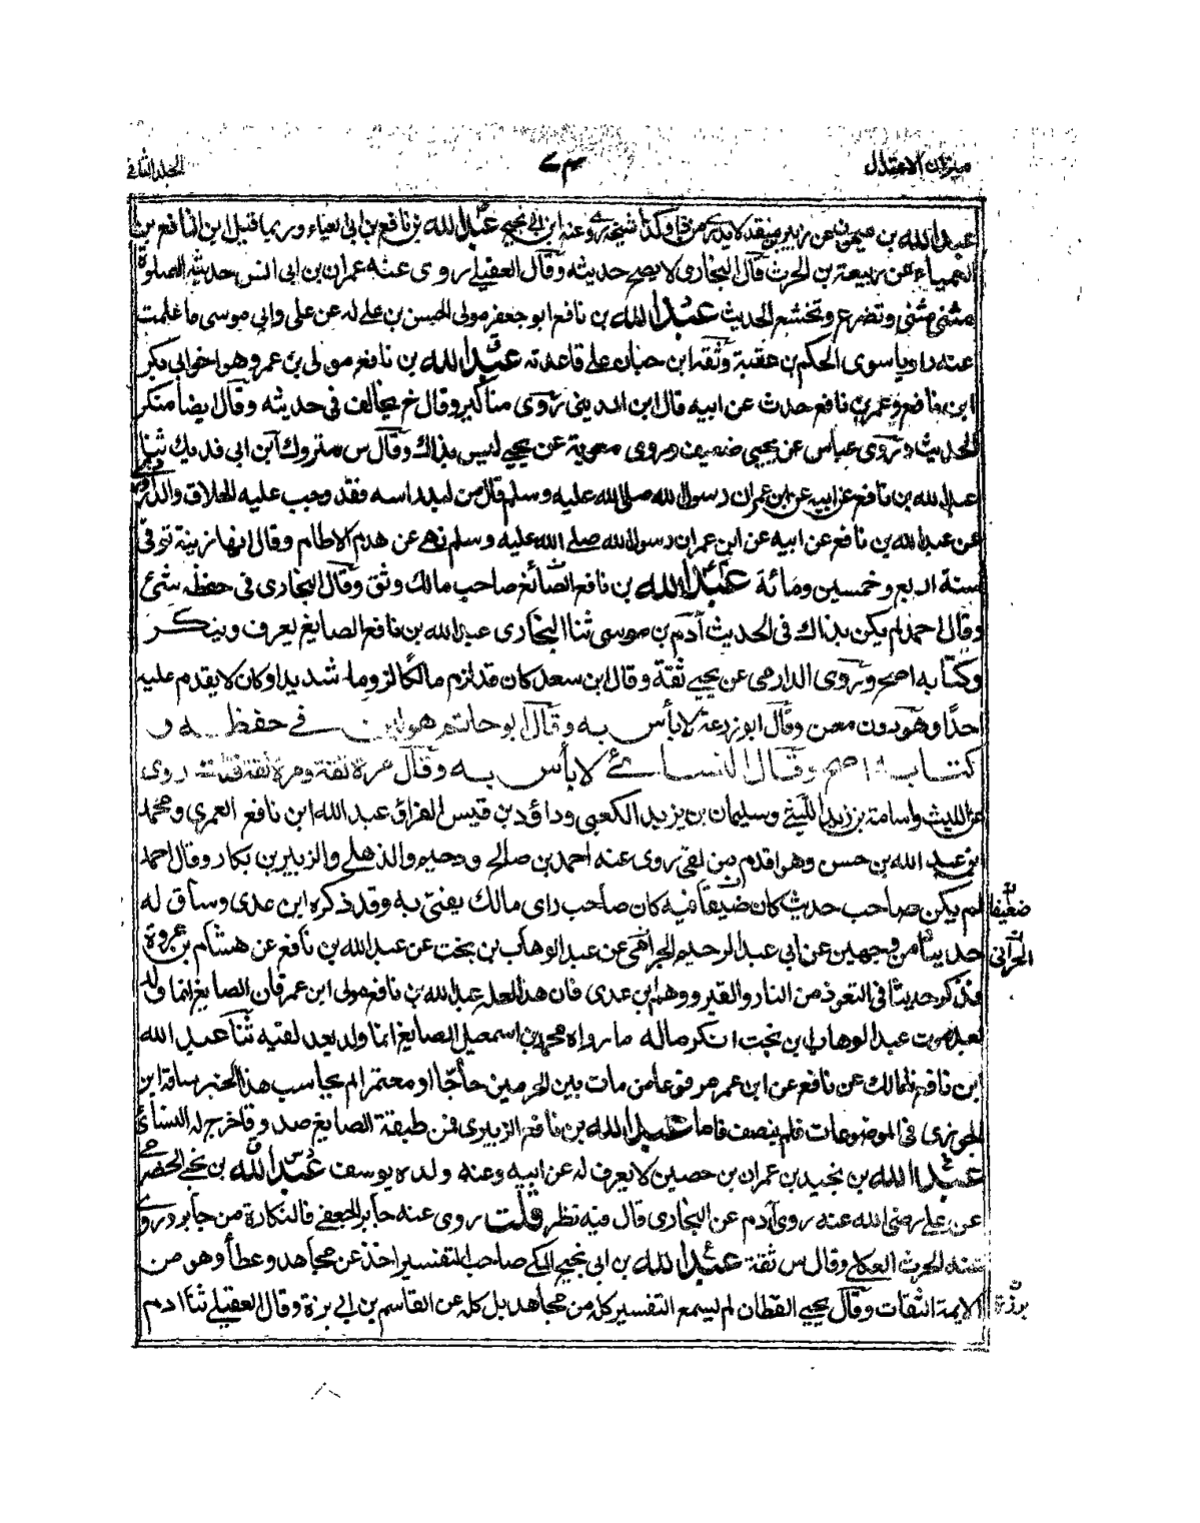 ميزان الاعتدال
المجلد الثانى
عبد الله بن ميمون عن زبير بن منقد لا يدرى من ذا وكذا شيخه روى عنه ابن ابى نجيح عبد الله بن نافع بن ابى العمياء وربما قيل ابن النافع بن
العمياء عن ربيعة بن الحرث قال البخارى لا يصح حديثه وقال العقيلى روى عنه عمران بن ابى انس حديثه الصلوة
مثنى مثنى وتضرع وتخشع الحديث عبد الله بن نافع ابو جعفر مولى الحسن بن على له عن على وابى موسى ما علمت
عنه راويا سوى الحكم بن عتيبة وثقه ابن حبان على قاعدته عبد الله بن نافع مولى بن عمر وهو اخو ابى بكر
ابن نافع وعمر بن نافع حدث عن ابيه قال ابن المدينى روى مناكير وقال خ يخالف فى حديثه وقال ايضا منكر
الحديث وروى عباس عن يحيى ضعيف وروى معوية عن يحيى ليس بذاك وقال س متروك ابن ابى فديك ثنا
عبد الله بن نافع عن ابيه عن ابن عمر ان رسول الله صلى الله عليه وسلم قال من لبد راسه فقد وجب عليه الحلاق
عن عبد الله بن نافع عن ابيه عن ابن عمر ان رسول الله صلى الله عليه وسلم نهى عن هدم الاطام وقال انها زينة توفى
سنة اربع وخمسين ومائة عبد الله بن نافع الصائغ صاحب مالك وثق وقال البخارى فى حفظه شئ
وقال احمد لم يكن بذاك فى الحديث آدم بن موسى ثنا البخارى عبد الله بن نافع الصايغ يعرف وينكر
وكتابه اصح وروى الدارمى عن يحيى ثقة وقال ابن سعد كان قد لزم مالكا لزوما شديدا وكان لا يقدم عليه
احدا وهو دون معن وقال ابو زرعة لا بأس به وقال ابو حاتم هو لين فى حفظه و
كتابه اصح وقال النسائے لا بأس به وقال مرة ثقة ومرة ثقة قلت روى
عن الليث واسامة بن زيد الليثى وسليمان بن يزيد الكعبى وداؤد بن قيس الفراق عبد الله ابن نافع العمرى ومحمد
ابن عبد الله بن حسن وهو اقدم من لقى روى عنه احمد بن صالح ودحيم والذهلى والزبير بن بكار وقال احمد
لم يكن صاحب حديث كان ضيقا فيه كان صاحب راى مالك يفتى به وقد ذكره ابن عدى وساق له
ضعيفا
حديثا من وجهين عن ابى عبد الرحيم الجراهى عن عبد الوهاب بن بخت عن عبد الله بن نافع عن هشام بن عروة
الحرانى
فذكر حديثا فى التعوذ من النار والقبر ووهم ابن عدى فان هذا لعله عبد الله بن نافع مولى ابن عمر فان الصايغ انما ولد
بعد موت عبد الوهاب ابن بخت انكر ماله ما رواه محمد بن اسمعيل الصايغ انما ولد بعد لقيه ثنا عبد الله
ابن نافع ثنا مالك عن نافع عن ابن عمر مرفوعا من مات بين الحرمين حاجا او معتمرا لم يحاسب هذا الخبر ساقه ابن
الجوزى فى الموضوعات فلم ينصف فاما عبد الله بن نافع الزبيرى فمن طبقة الصايغ صدوق اخرج له النسائى
عبد الله بن نجيد بن عمران بن حصين لا يعرف له عن ابيه وعنه ولده يوسف عبد الله بن نجى الحضرمى
عن على رضى الله عنه روى آدم عن البخارى قال فيه نظر قلت روى عنه جابر الجعفى فالنكارة من جابر وروى
عنه الحرث العكلى وقال س ثقة عبد الله بن ابى نجيح المكى صاحب التفسير اخذ عن مجاهد وعطأ وهو من
الايمة الثقات وقال يحيى القطان لم يسمع التفسير كله من مجاهد بل كله عن القاسم بن ابى برة وقال العقيلى ثنا ادم
بزة